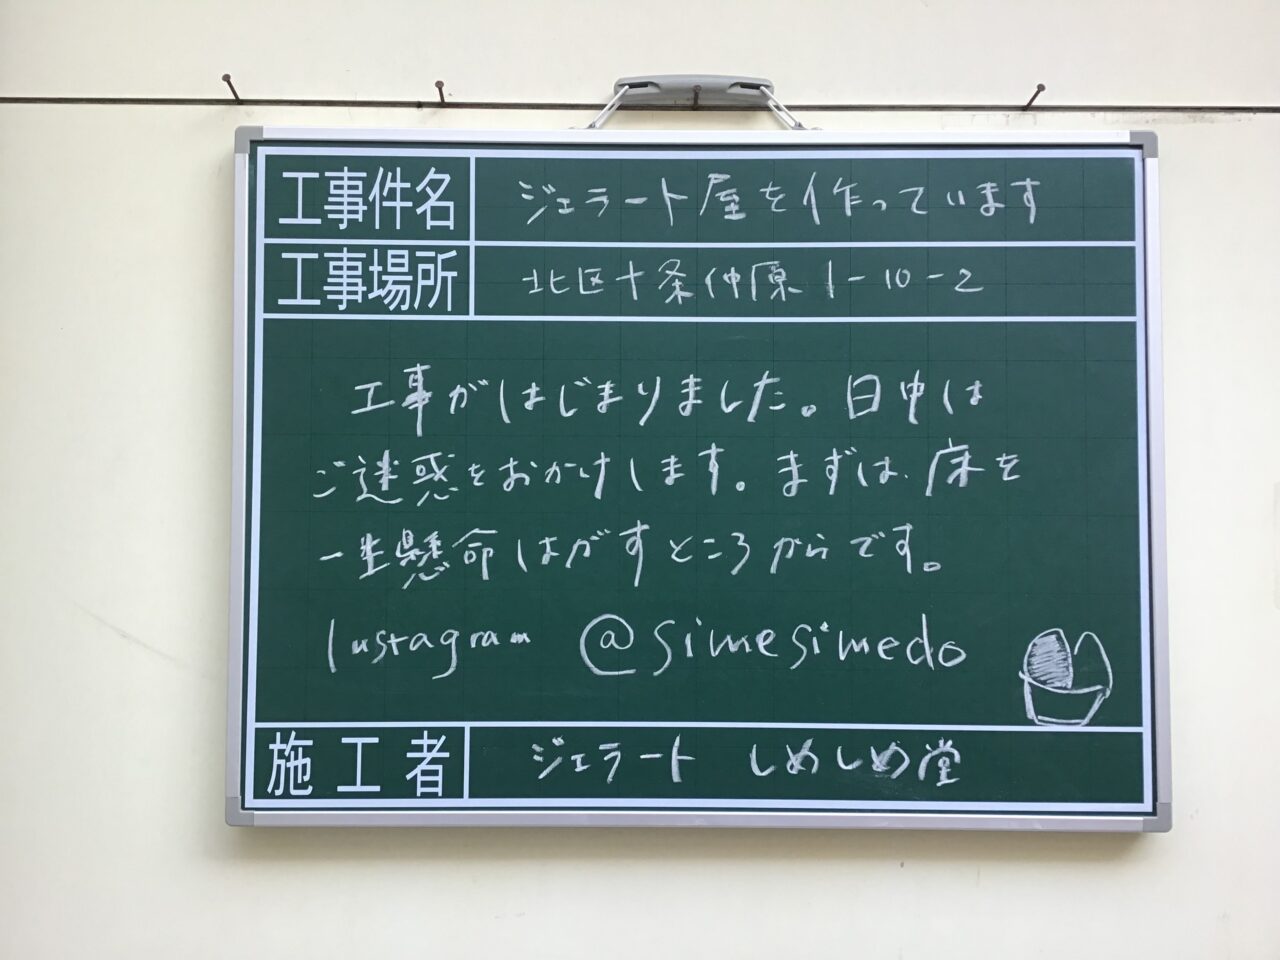 工事件名 ジェラート屋を作っています
工事場所 北区十条仲原1-10-2
工事がはじまりました。日中は
ご迷惑をおかけします。まずは、床を
一生懸命はがすところからです。
Instagram @simesimedo
施工者 ジェラート しめしめ堂